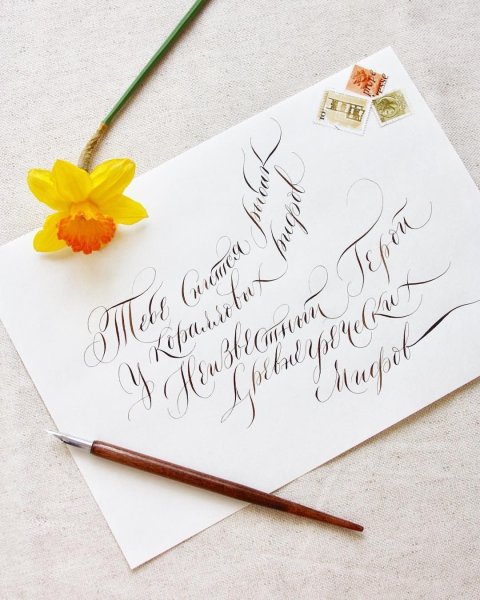 Тебе снится рыбак
У коралловых рифов
Неизвестный Герой
Древнегреческих
Мифов